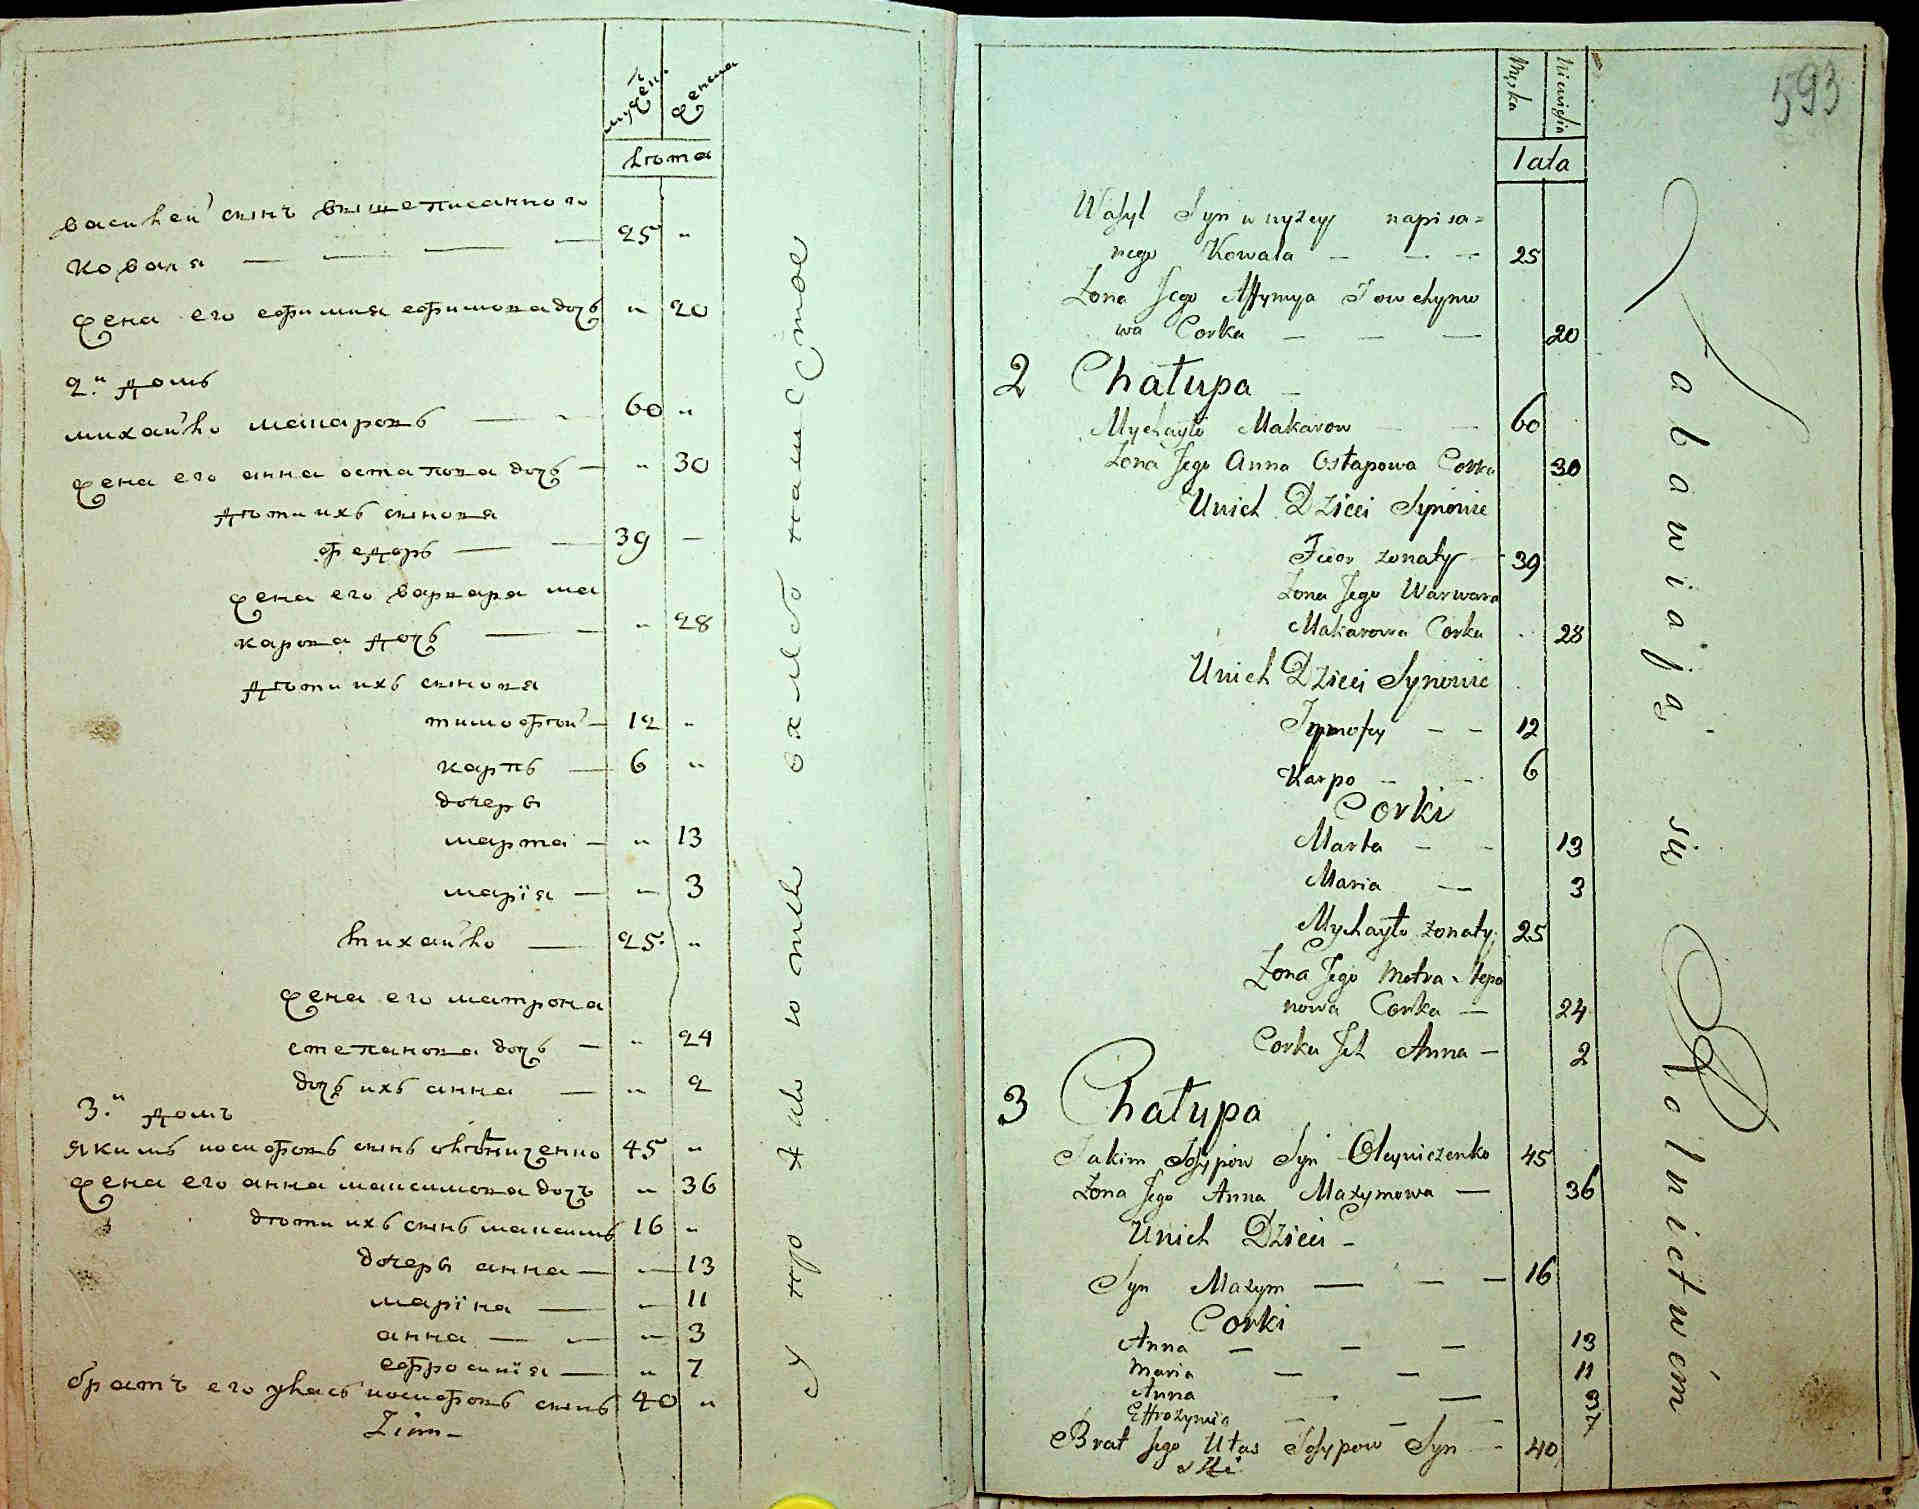 мужен женска
лѣта
василей сынъ вышеписанного
коваля — — — — 25 "
жена его ефимия ефимова дочь " 20
2.й домъ
михайло макаровъ — — 60 "
жена его анна остапова дочь — " 30
дѣти ихъ сыновя
федоръ — — 39 —
жена его варвара ма
карова дочь — — " 28
дѣти ихъ сыновя
тимофѣй — 12 "
карпъ — 6 "
дочеры
марта — " 13
марїя — — 3
михайло — 25. "
жена его матрона
степанова дочь — " 24
дочь ихъ анна — " 2
3.й домъ
якимъ иосифовъ сынъ 45 "
жена его анна максимова дочъ " 36
дѣти ихъ сынъ максимъ 16 "
дочеры анна — — 13
марїна — — 11
анна — — — 3
ефросинїя — " 7
братъ его уласъ иосифовъ сынъ 40 "
593
Męska Niewieścia
lata
Wasyl Syn wyżey napisa=
nego Kowala — — — 25
Żona Jego Affymya
wa Corka — — — 20
2 Chałupa —
Mychayło Makarow — — 60
Żona Jego Anna Ostapowa Corka 30
U nich Dzieci Synowie
żonaty — 39
Żona Jego Warwara
Makarowa Corka 28
U nich Dzieci Synowie
Tymofiy — — 12
Karpo — — 6
Corki
Marta — — 13
Maria — 3
Mychayło żonaty 25
Żona Jego Motra Stepa
nowa Corka — 24
Corka Jch Anna — 2
3 Chałupa
Jakim Josypow Syn Oleyniczenko 45
Żona Jego Anna Maxymowa — 36
U nich Dzieci —
Syn Maxym — — — 16
Corki
Anna — — — 13
Maria — — 11
Anna — — 3
Effrozynia — — — 7
Brat Jego Ułas Josypow Syn — 40
Zabawiają się Rolnictwem